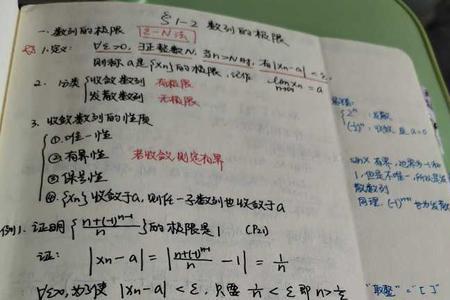 §1-2 数列的极限
一、数列的极限 ε-N法
1.定义: ∀ε>0, ∃正整数N, 当n>N时, 有|xn-a|<ε,
则称a是{xn}的极限, 记作 lim xn = a
n→∞
2. 分类 { 收敛数列 有极限
发散数列 无极限
3. 收敛数列的性质
①.唯一性
②.有界性 若收敛则定有界
③.保号性
④.{xn}收敛于a, 则任一子数列也收敛于a
例1. 证明{n+(-1)ⁿ⁻¹/n}的极限是1 (P21)
证: |xn-a| = |n+(-1)ⁿ⁺¹/n - 1| = 1/n
∀ε>0, 为了使 |xn-a|<ε, 只要 1/n<ε 即 n>1/ε
2ⁿ, 发散
收敛 且 a=0
有界
散数列
同理, (-1)ⁿ⁺¹也为发散
"取整" = "[ ]"